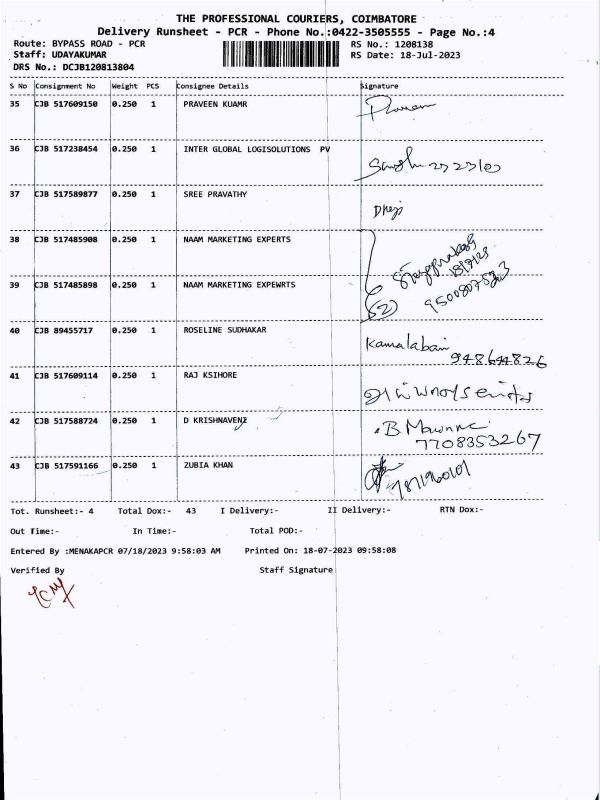 THE PROFESSIONAL COURIERS, COIMBATORE
Delivery Runsheet - PCR - Phone No.:0422-3505555 - Page No.:4
Route: BYPASS ROAD - PCR
RS No.: 1208138
Staff: UDAYAKUMAR
RS Date: 18-Jul-2023
DRS No.: DCJB120813804
S No Consignment No Weight PCS Consignee Details Signature
35 CJB 517609150 0.250 1 PRAVEEN KUAMR
36 CJB 517238454 0.250 1 INTER GLOBAL LOGISOLUTIONS PV
37 CJB 517589877 0.250 1 SREE PRAVATHY
38 CJB 517485908 0.250 1 NAAM MARKETING EXPERTS
39 CJB 517485898 0.250 1 NAAM MARKETING EXPEWRTS
40 CJB 89455717 0.250 1 ROSELINE SUDHAKAR
Kamalabai
948644826
41 CJB 517609114 0.250 1 RAJ KSIHORE
42 CJB 517588724 0.250 1 D KRISHNAVENI
7708353267
43 CJB 517591166 0.250 1 ZUBIA KHAN
Tot. Runsheet:- 4 Total Dox:- 43 I Delivery:- II Delivery:- RTN Dox:-
Out Time:- In Time:- Total POD:-
Entered By :MENAKAPCR 07/18/2023 9:58:03 AM Printed On: 18-07-2023 09:58:08
Verified By Staff Signature